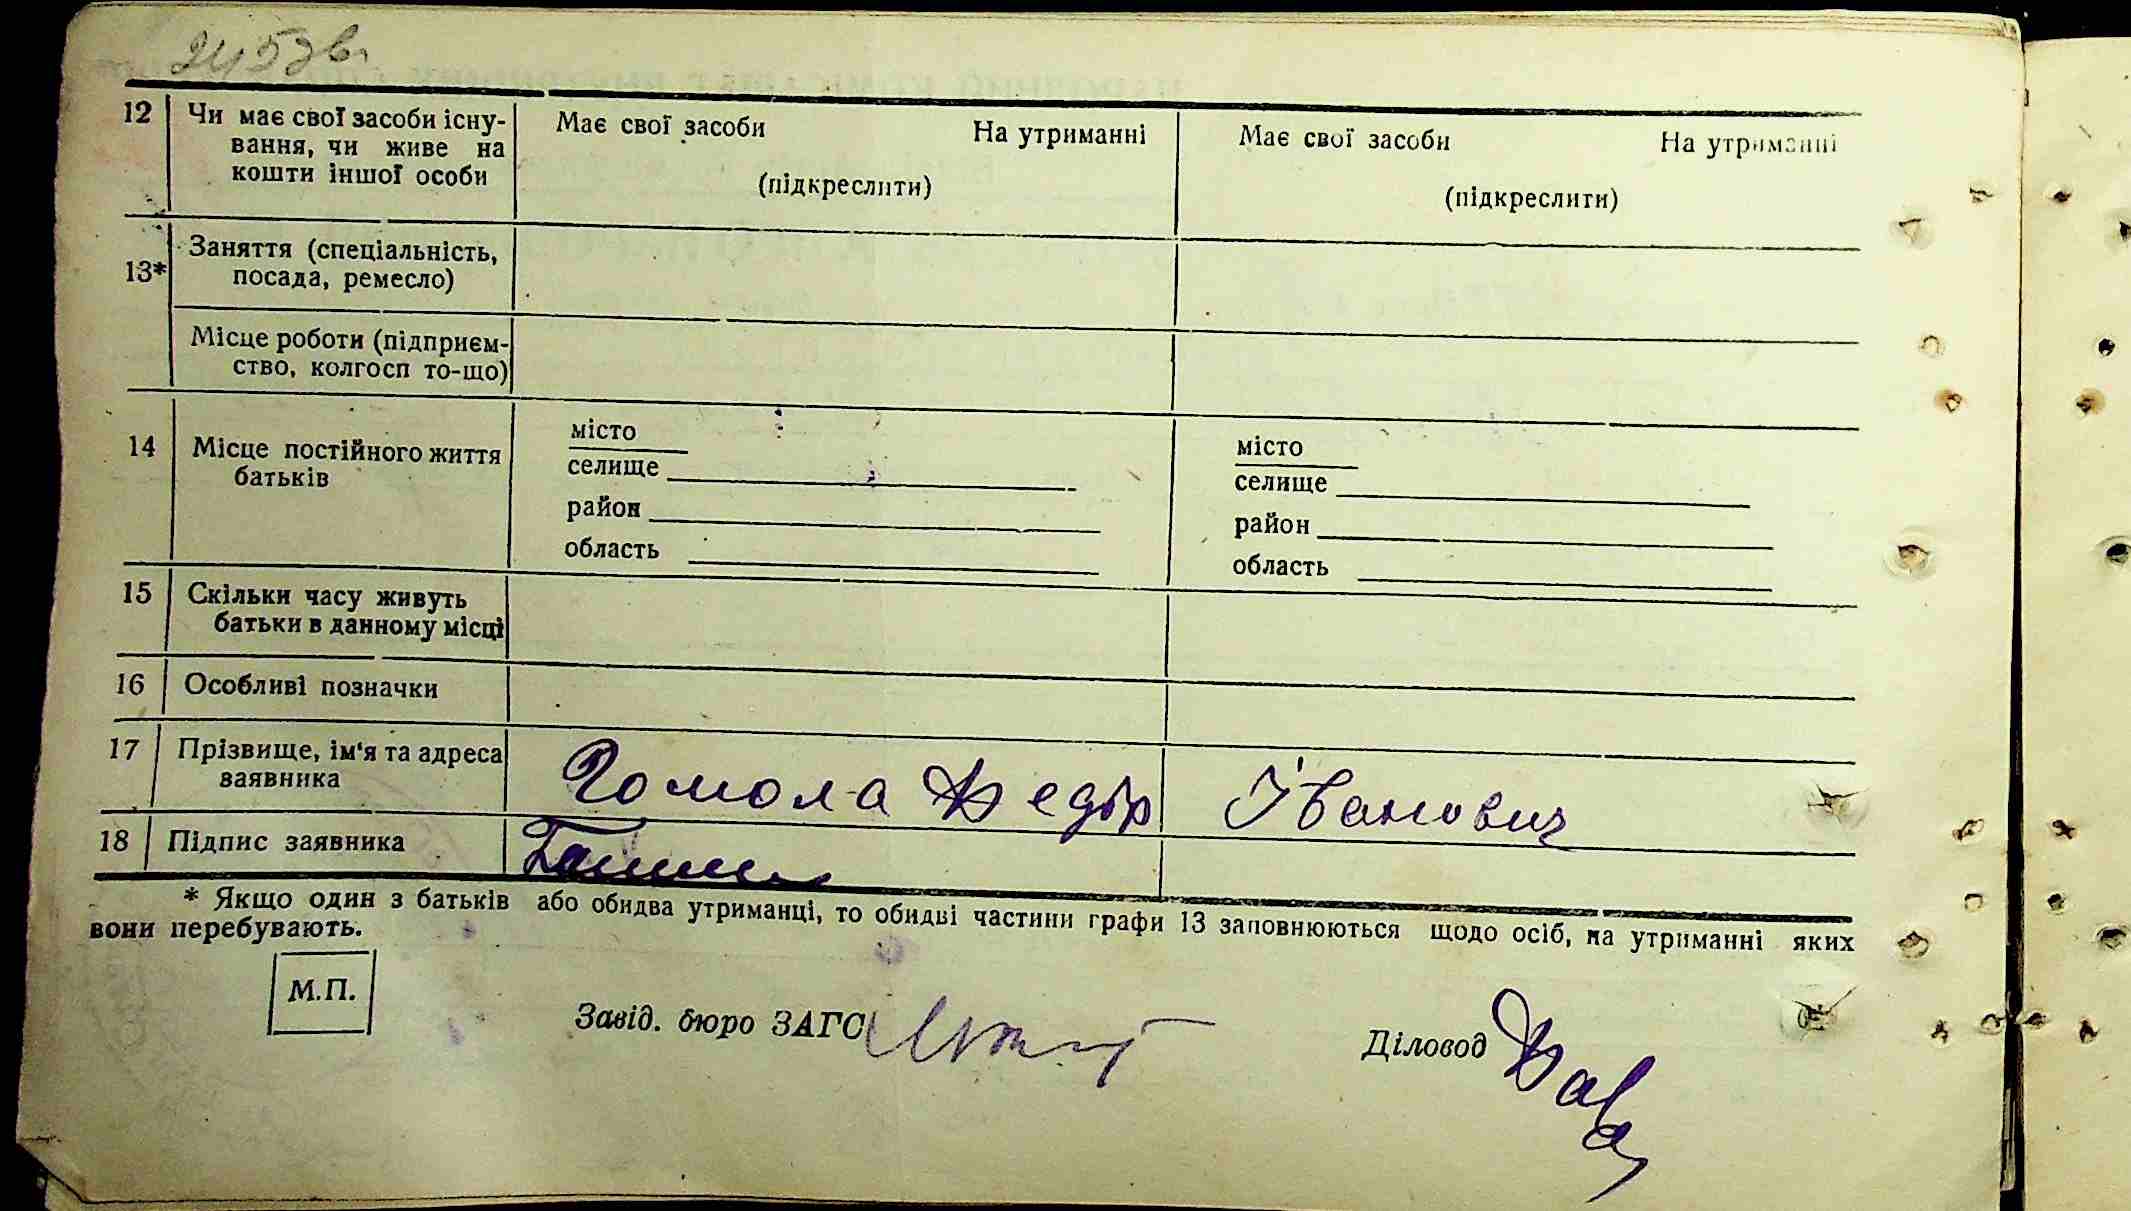 245 зв.
12 Чи має свої засоби існу- Має свої засоби На утриманні Має свої засоби На утриманні
вання, чи живе на
кошти іншої особи (підкреслити) (підкреслити)
13* Заняття (спеціальність,
посада, ремесло)
Місце роботи (підприєм-
ство, колгосп то-що)
14 Місце постійного життя
батьків
місто місто
селище селище
район район
область область
15 Скільки часу живуть
батьки в данному місці
16 Особливі позначки
17 Прізвище, ім'я та адреса
заявника
Гомола Федір Іванович
18 Підпис заявника
* Якщо один з батьків або обидва утриманці, то обидві частини графи 13 заповнюються щодо осіб, на утриманні яких
вони перебувають.
М.П.
Завід. бюро ЗАГС Діловод